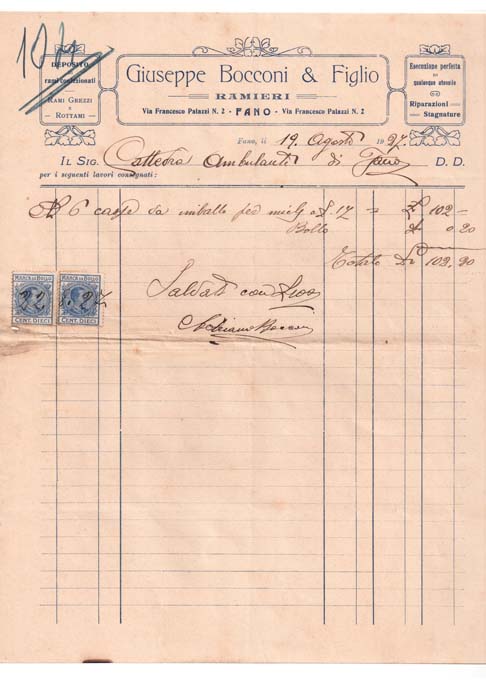 DEPOSITO
rami confezionati
RAMI GREZZI
e
ROTTAMI
Giuseppe Bocconi & Figlio
RAMIERI
Via Francesco Palazzi N. 2 - FANO - Via Francesco Palazzi N. 2
Esecuzione perfetta
di
qualunque utensile
Riparazioni
Stagnature
Fano, li 19 Agosto 1927.
IL SIG. Cattedra Ambulante di Fano D. D.
per i seguenti lavori consegnati:
6 casse da imballo per miele 17 = 102 -
Bollo 0.20
Totale 102.20
MARCA DA BOLLO MARCA DA BOLLO
22 8. 27
CENT. DIECI CENT. DIECI
Saldato con
Adriano Bocconi